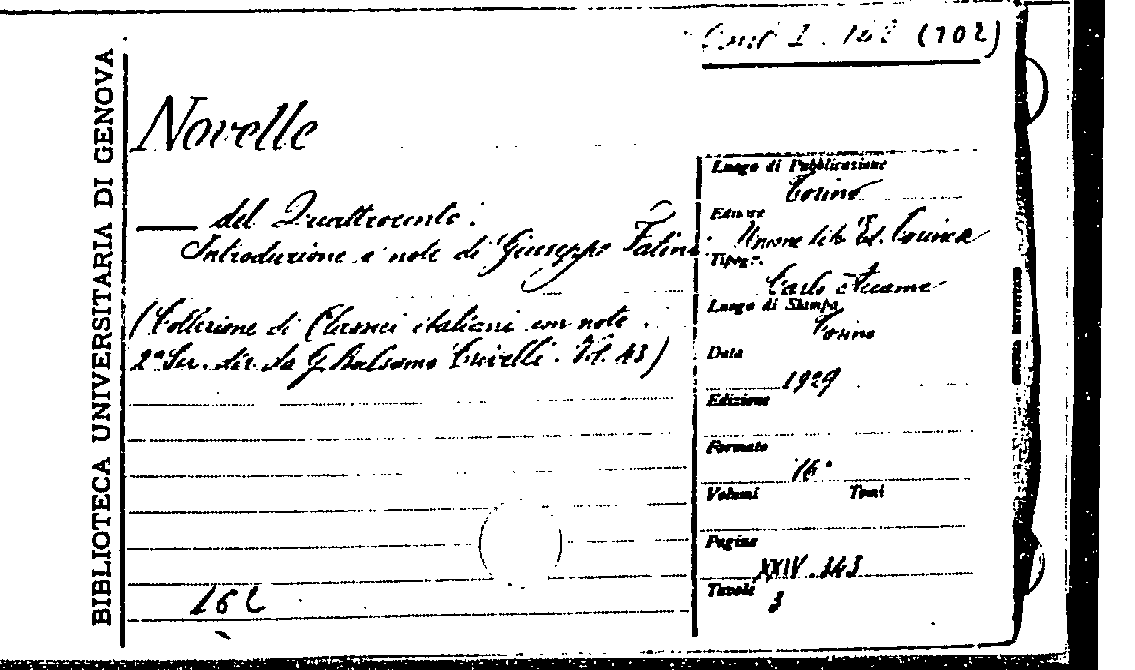 BIBLIOTECA UNIVERSITARIA DI GENOVA
(102)
Novelle
del Quattrocento.
Introduzione e note di Giuseppe Fatini
(Collezione di Classici italiani con note.
2ª Ser. dir. da G. Balsamo Crivelli. Vol. 43)
16 C
Luogo di Pubblicazione
Torino
Editore
Unione tib. Ed. Torinese
Tipogr.
Carlo Accame
Luogo di Stampa
Torino
Data
1929
Edizione
Formato
16°
Volumi Tomi
Pagine
XXIV. 343
Tavole
3